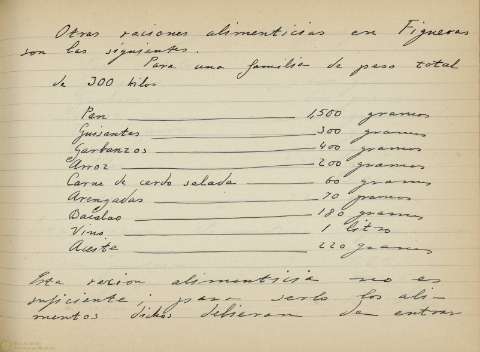 Otras raciones alimenticias en Figueras
son las siguientes.
Para una familia de peso total
de 300 kilos
Pan 1,500 gramos
Guisantes 300 gramos
Garbanzos 400 gramos
Arroz 200 gramos
Carne de cerdo salada 60 gramos
Arengadas 70 gramos
Bacalao 180 gramos
Vino 1 litro
Aceite 220 gramos
Esta racion alimenticia no es
suficiente; para serlo los ali-
mentos dichos debieran de entrar